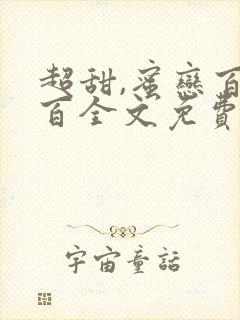 超甜,蜜戀百
百全文免費
宇宙童話